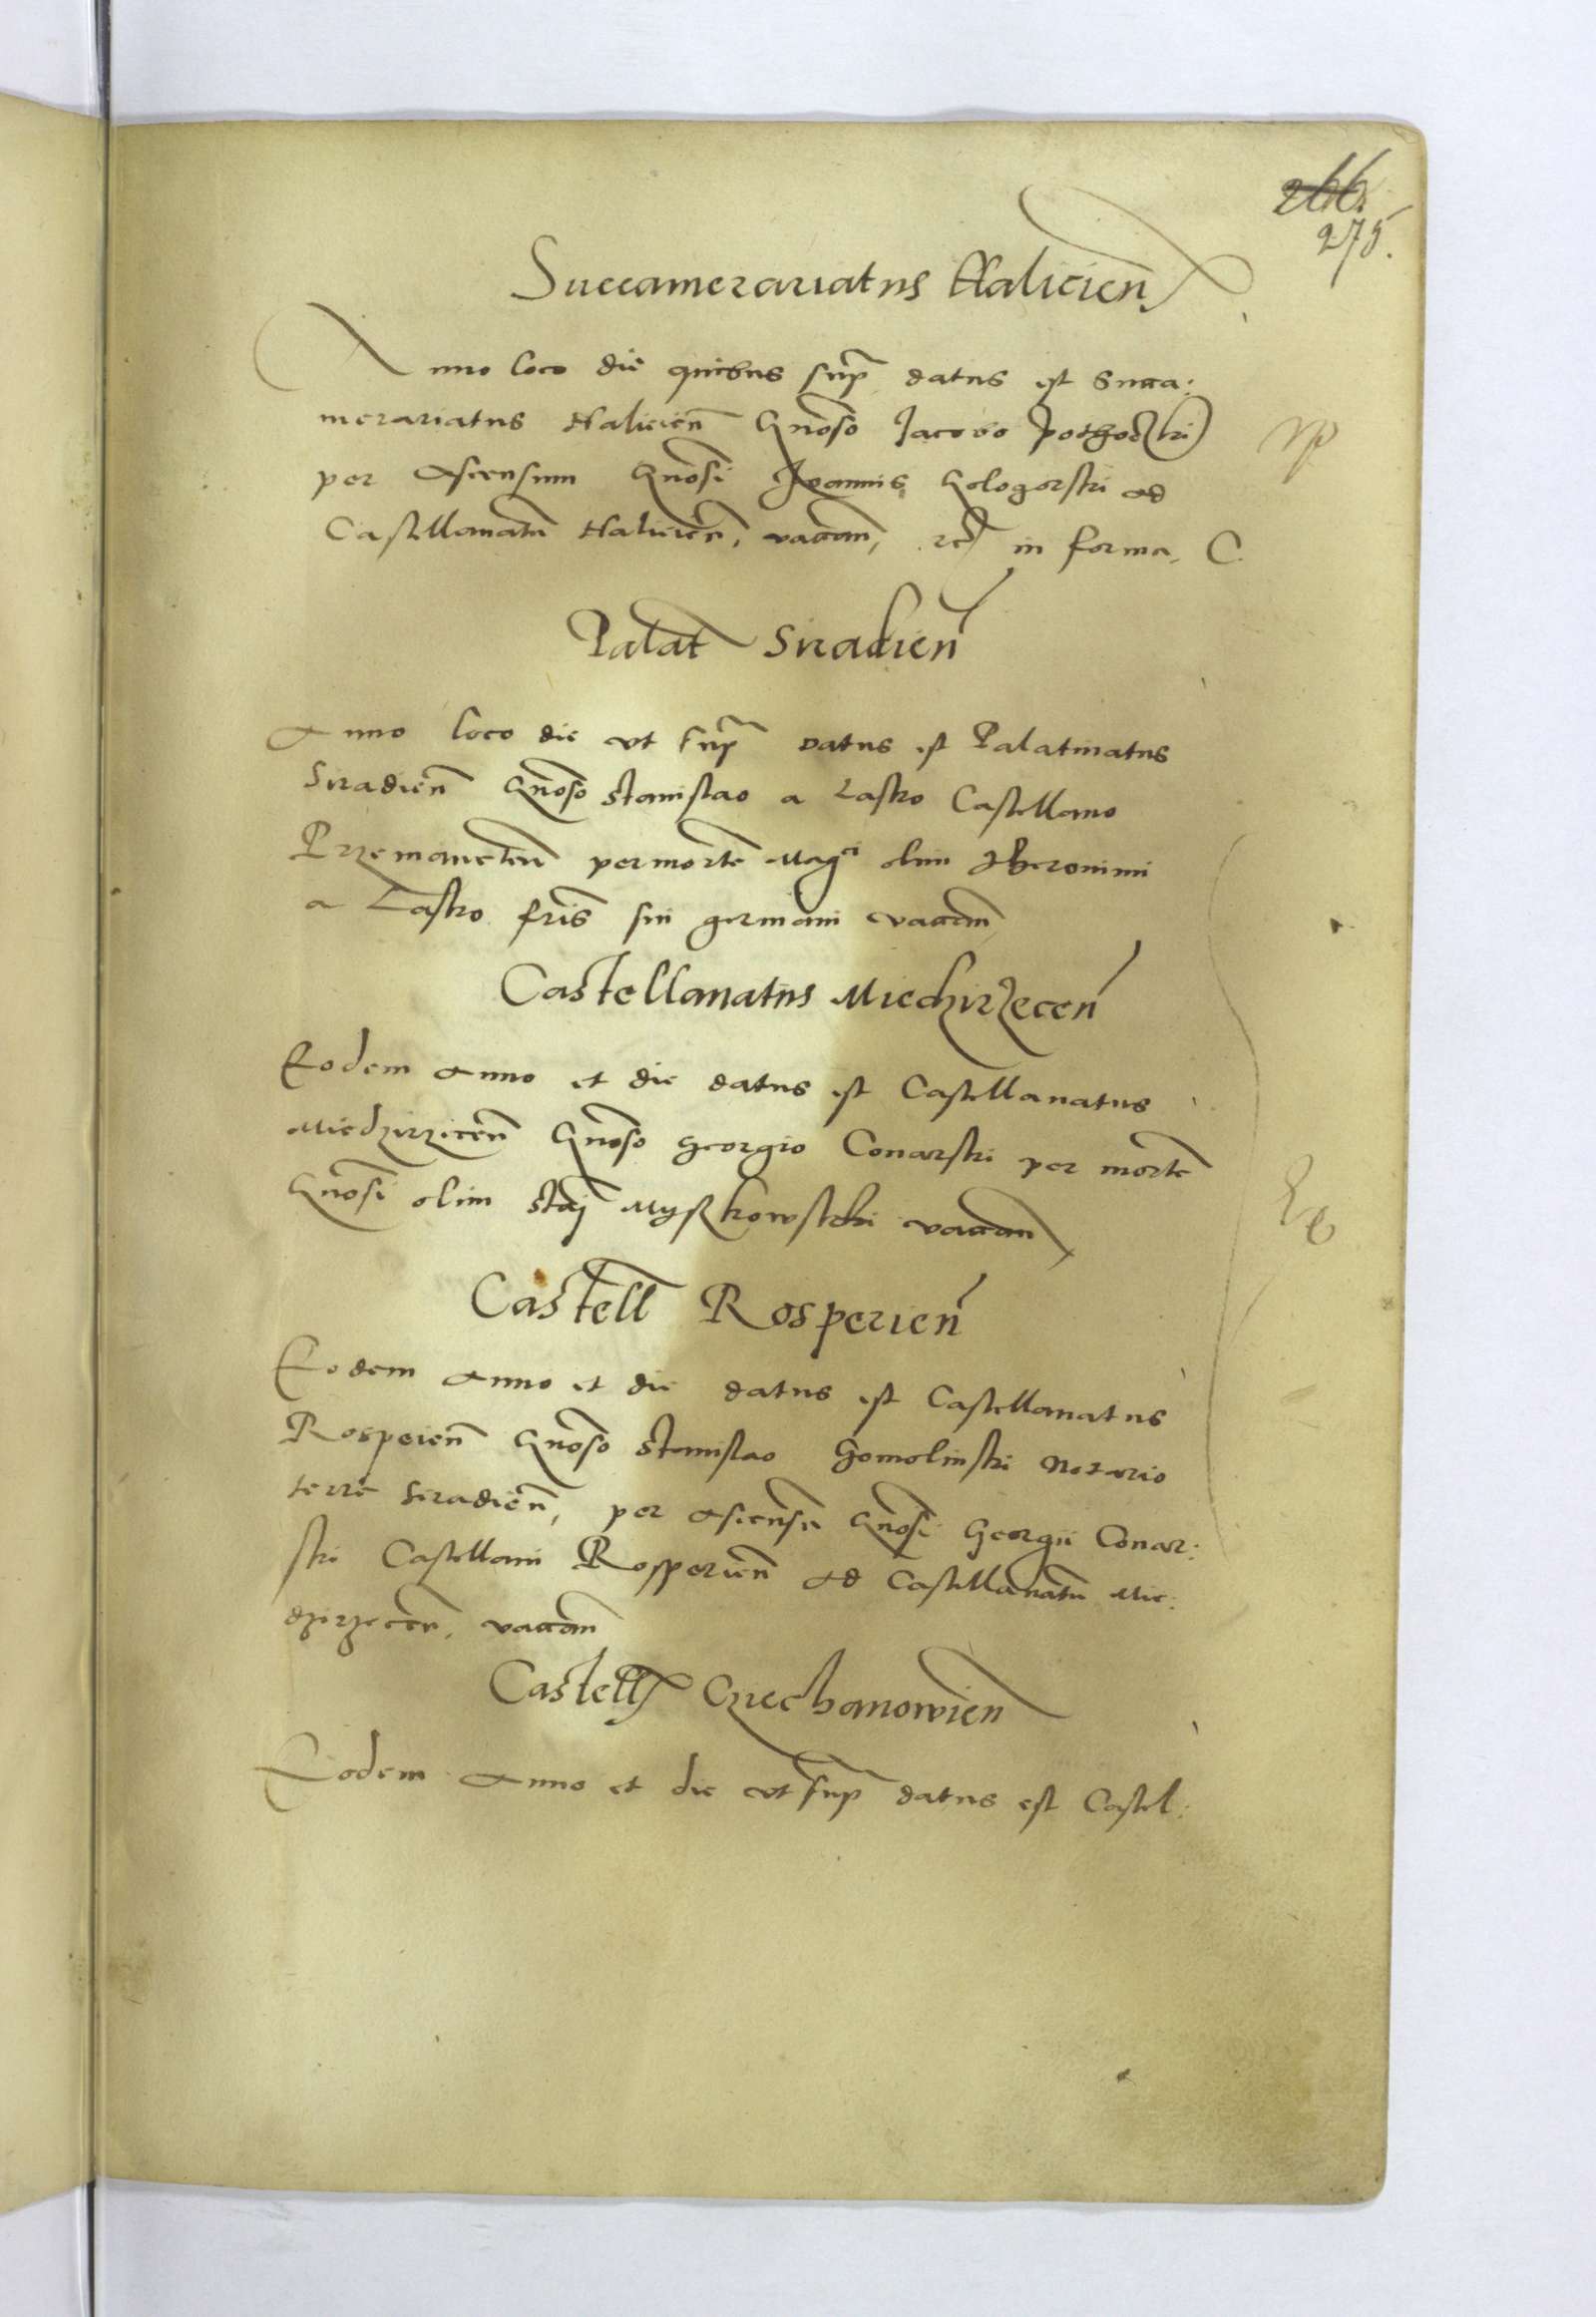 266.
275.
Succamerariatus Halicien
Anno loco die quibus sup datus est Succa:
merariatus Halicien Gnoso Jacobo Pothoczki
per Ascensum Gnosi Joannis Gologorski ad
Castellanatu Halicien, vacan, in forma C.
Palat Siradien
Anno loco die vt sup datus est Palatinatus
Siradien Gnoso Stanislao a Lasko Castellano
Przemeneten per morte Magci olim Hieronimi
a Lasko fris sui germani vacan
Castellanatus Miedzirzecen
Eodem Anno et die datus est Castellanatus
Miedzirzicen Gnoso Georgio Conarski per morte
Gnosi olim Stai Myszkowski vacan
Castell Rosperien
Eodem Anno et die datus est Castellanatus
Rospeien Gnoso Stanislao Gomolinski Notario
terre Siradien, per Ascensu Gnosi Georgii Conar:
ski Castellani Rosperien ad Castellanatu Mie:
dzirzecen, vacan
Castell Cziechanowien
Eodem Anno et die vt sup datus est Castel: